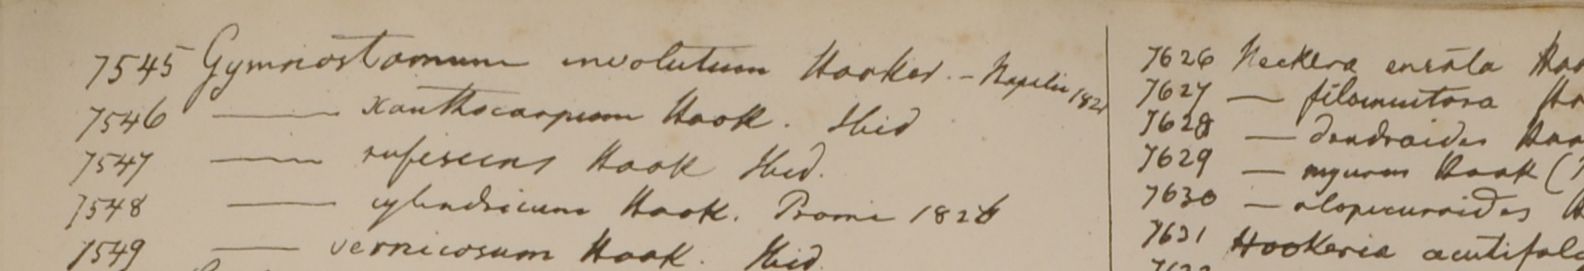 7545 Gymnostomum involutum Hooker. - Napalia 1821
7546 — xanthocarpum Hook. Ibid
7547 — rufescens Hook Ibid.
7548 — cylindricum Hook. Prome 1826
7549 — vernicosum Hook. Ibid.
7626 Neckera ensata Hoo
7627 — filamentosa Ho
7628 — dendroides Hoo
7629 — myurum Hook (
7630 — alopecuroides H
7631 Hookeria acutifol